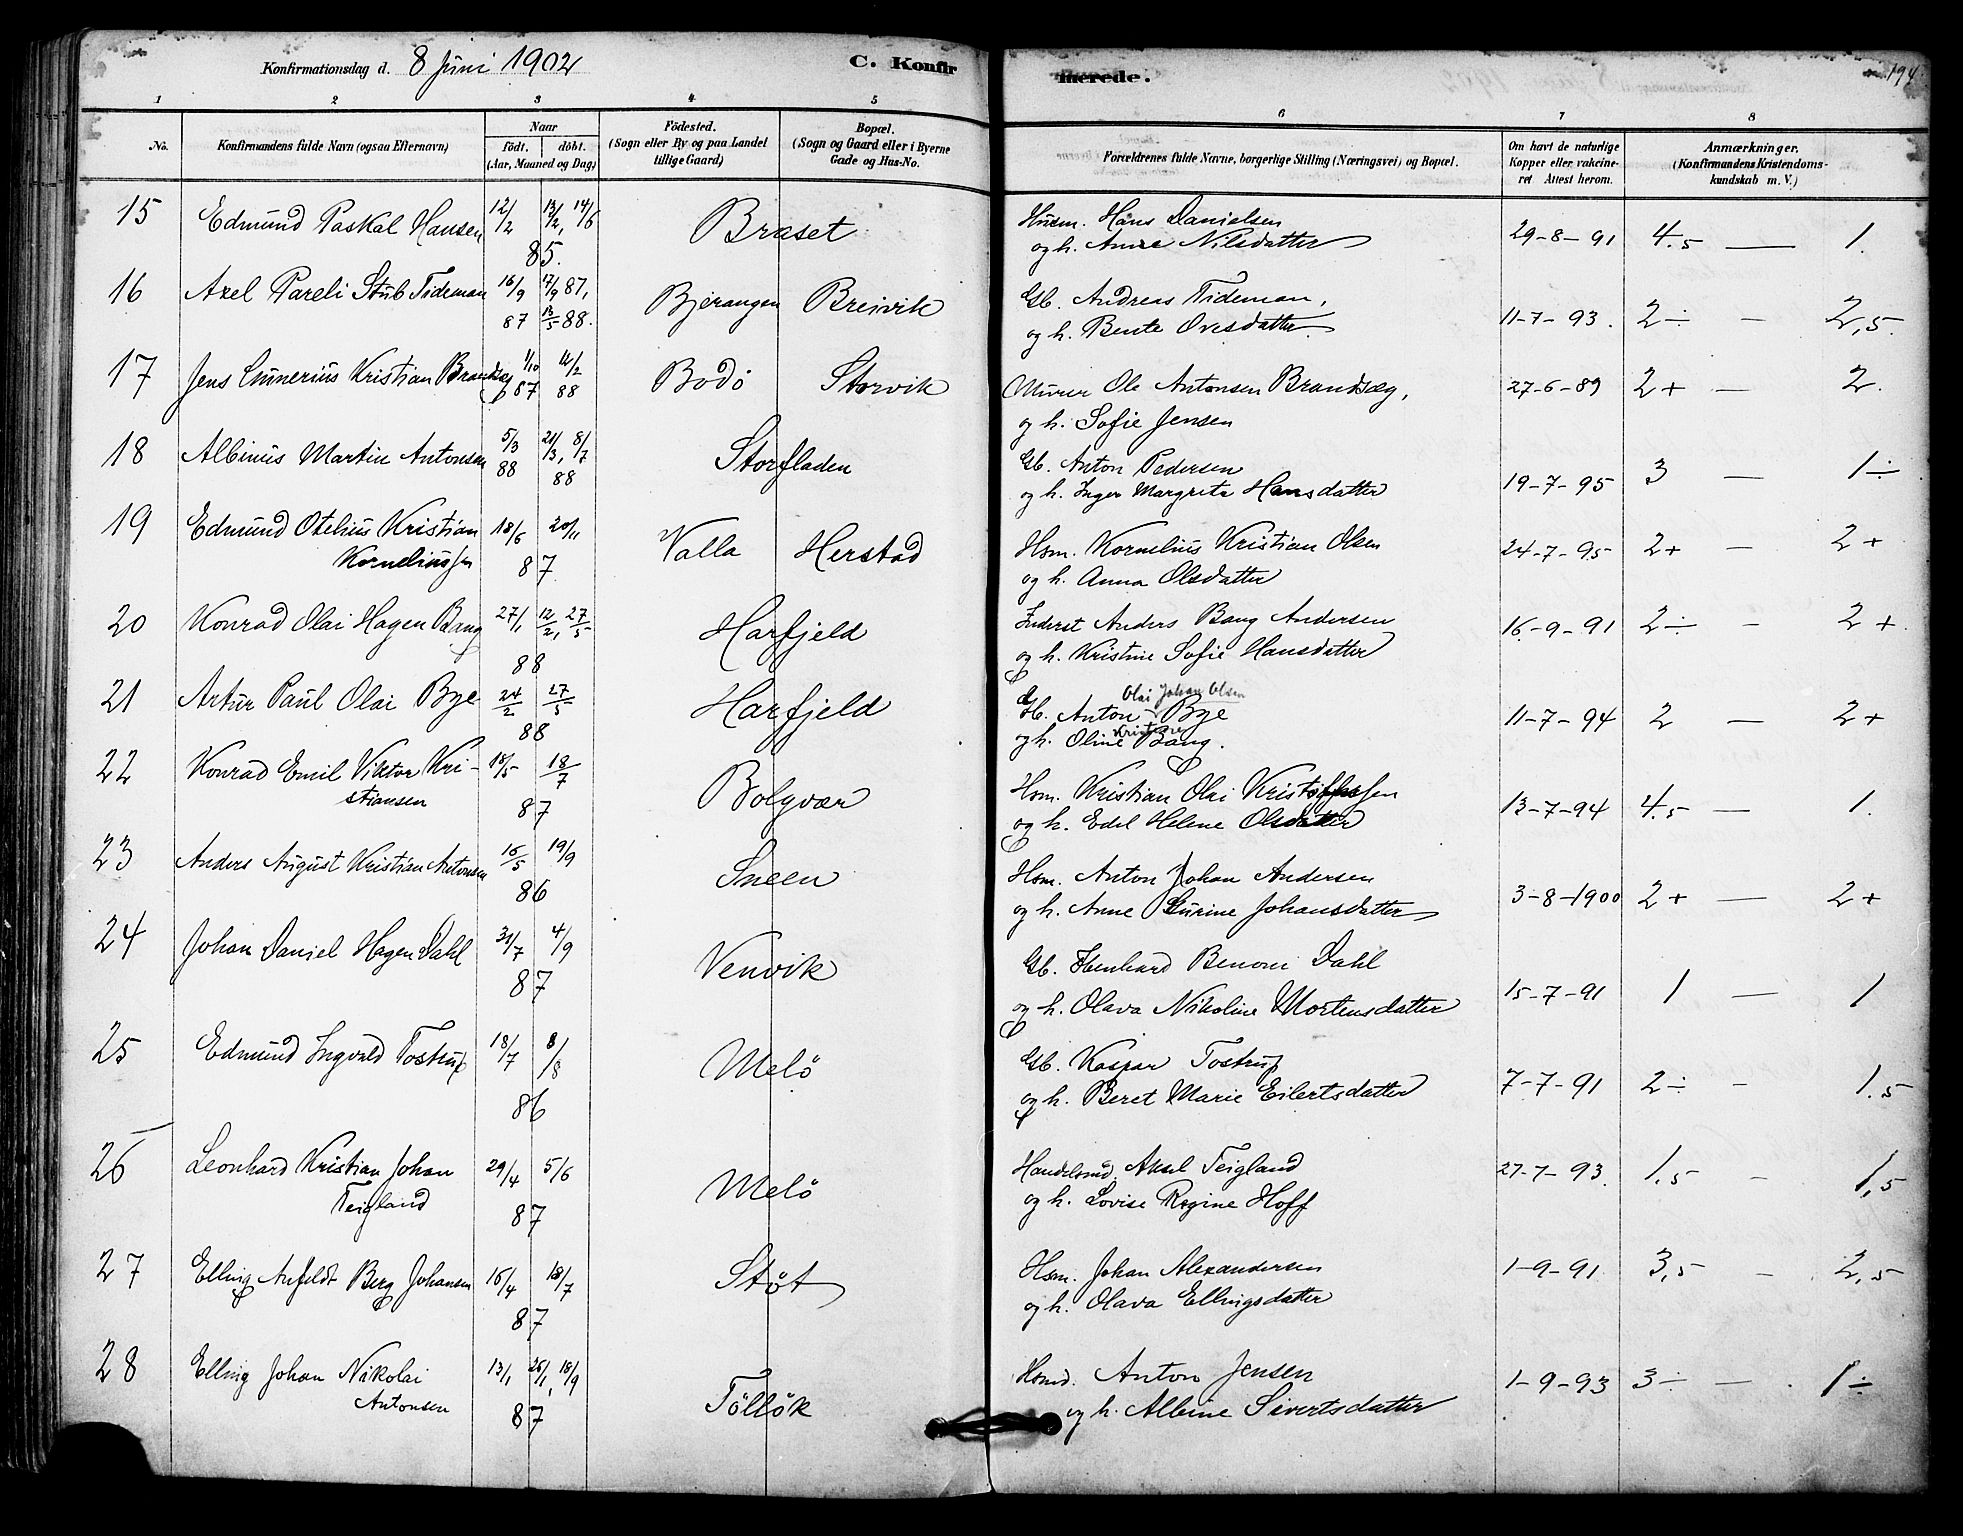 Konfirmationsdag d. 8 Juni 1902 C. Konfirmerede. 194
1 2 3 4 5 6 7 8
No. Konfirmandens fulde Navn (ogsaa Efternavn) Naar födt. döbt. (Aar, Maaned og Dag) Födested. (Sogn eller By og paa Landet tillige Gaard) Bopæl. (Sogn og Gaard eller i Byerne Gade og Hus-No. Forældrenes fulde Navne, borgerlige Stilling (Næringsvei) og Bopæl. Om havt de naturlige Kopper eller vakcineret Attest herom. Anmærkninger. (Konfirmandens Kristendomskundskab m. V.)
15 Edmund Paskal Hansen 12/2 13/2, 14/6 85. Braset Husm. Hans Danielsen
og h. Anne Nilsdatter 29-8-91 4.5 — 1.
16 Axel Pareli Stub Tideman 16/9 87 17/9 87, 13/5 88. Bjerangen Breivik Gb. Andreas Tideman,
og h. Bente Ovesdatter 11-7-93. 2÷ — 2,5.
17 Jens Gunerius Kristian Brandsæg 1/10 87 12/2 88 Bodö Storvik Murer Ole Antonsen Brandsæg,
og h. Sofie Jensen 27-6-89 2+ — 2.
18 Albinus Martin Antonsen 5/3 88 21/3, 8/7 88 Storfladen Gb. Anton Pedersen
og h. Inger Margrete Hansdatter 19-7-95 3 — 1÷
19 Edmund Otelius Kristian
Korneliussen 18/6 20/11 87. Valla Herstad Hsm. Kornelius Kristian Olsen
og h. Anna Olsdatter 24-7-95 2+ — 2+
20 Konrad Olai Hagen Bang 27/1 12/2, 27/5 88 Harfjeld Inderst Anders Bang Andersen
og h. Kristine Sofie Hansdatter 16-9-91 2÷ - 2+.
21 Artur Paul Olai Bye 24/2 27/5 88 Harfjeld Olai Johan Olsen
Gb. Anton Bye
og h. Oline Kristine Bang. 11-7-94 2 — 2+
22 Konrad Emil Viktor Kri-
stiansen 18/5 18/7 87 Bolgvær Hsm. Kristian Olai Kristoffersen
og h. Edel Helene Olsdatter 13-7-94 4.5 — 1.
23 Anders August Kristian Antonsen 16/5 19/9 86 Sneen Hsm. Anton Johan Andersen
og h. Anne Gurine Johansdatter 3-8-1900 2+ — 2+
24 Johan Daniel Hagen Dahl 31/7 4/9 87 Venvik Gb. Benoni Dahl
og h. Olava Nikoline Mortensdatter 15-7-91 1 — 1
25 Edmund Ingvald Tostrup 18/7 8/8 86 Melö Gb. Kaspar Tostrup
og h. Beret Marie Eilertsdatter 7-7-91 2÷ - 1.5
26 Leonhard Kristian Johan
Teigland 29/4 5/6 87 Melö Handelsmd. Aksel Teigland
og h. Lovise Regine Hoff 27-7-93. 1.5 - 1,5
27 Elling Anfeldt Berg Johansen 16/4 18/7 87 Stöt Hsm. Johan Alexandersen
og h. Olava Ellingsdatter 1-9-91 3,5 - 2,5
28 Elling Johan Nikolai
Antonsen 13/1 26/1, 18/9 87 Töllök Hsmd. Anton Jensen
og h. Albine Sivertsdatter 1-9-93 3÷ — 1÷